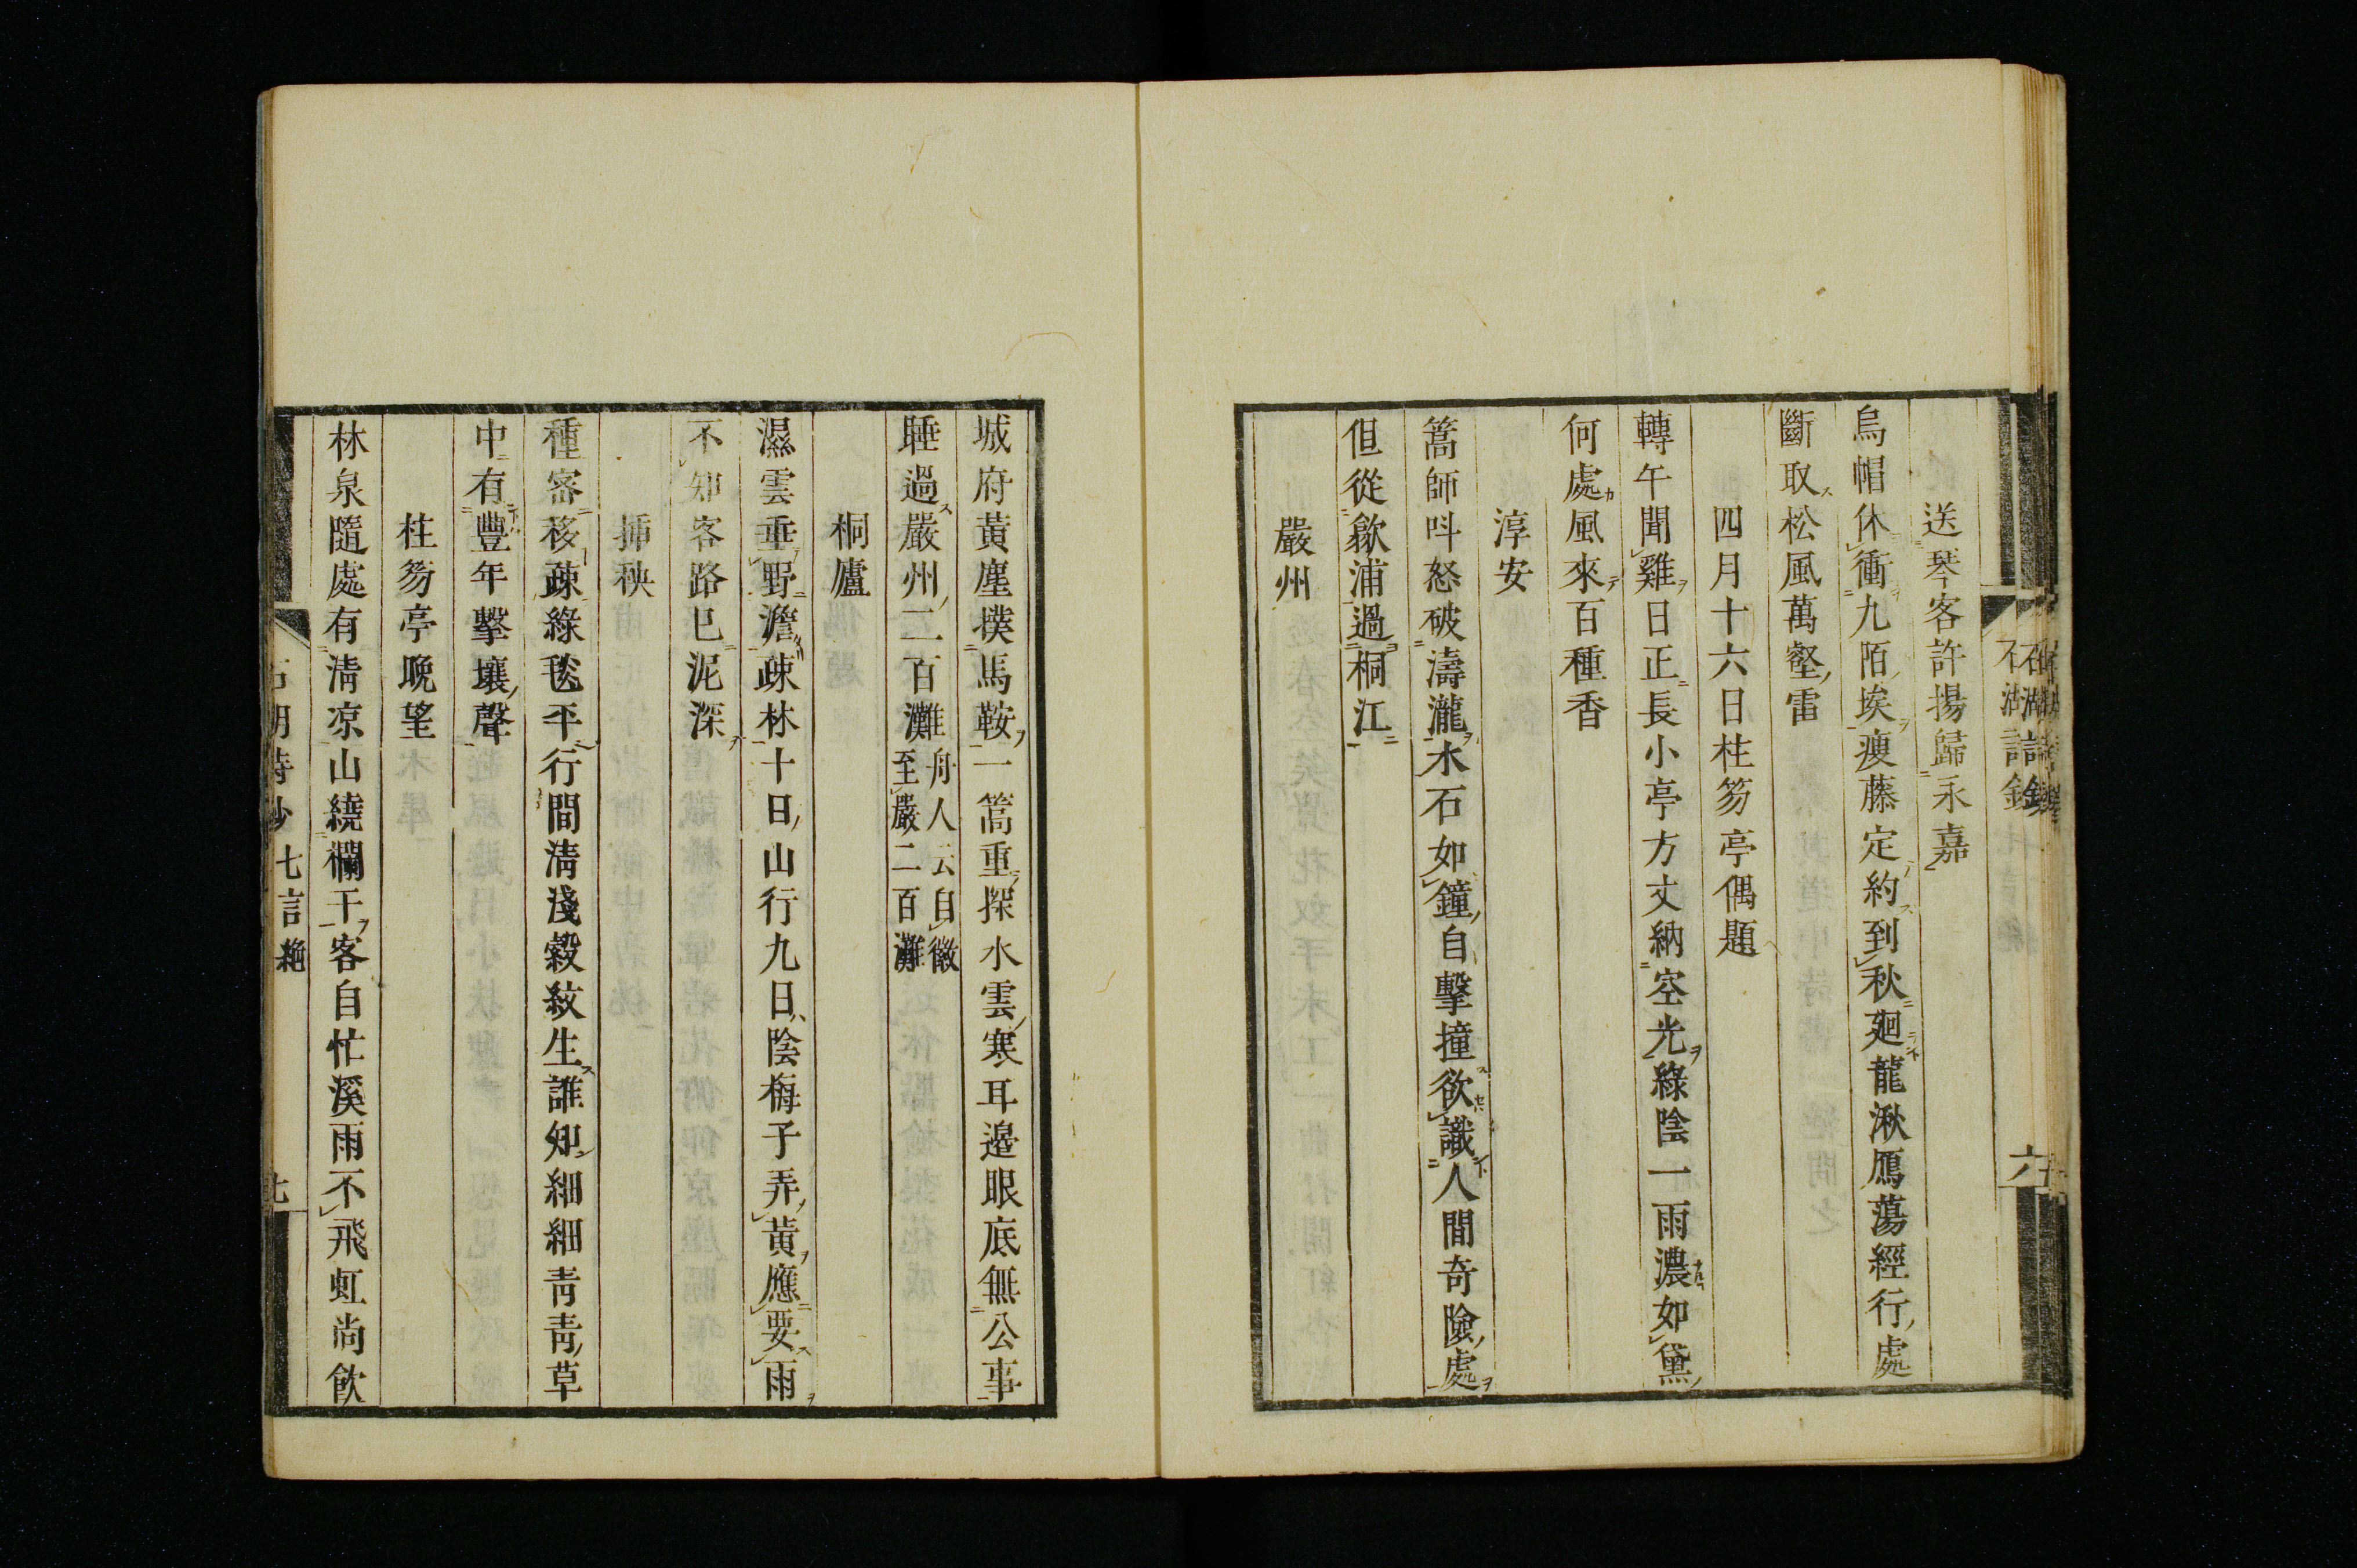 送琴客許揚歸永嘉
烏帽休衝九陌埃瘦藤定約到秋廻龍湫鴈蕩經行處
斷取松風萬壑雷
四月十六日柱笏亭偶題
轉午聞雞日正長小亭方丈納空光綠陰一雨濃如黛
何處風來百種香
淳安
篙師呌怒破濤瀧水石如鐘自擊撞欲識人間奇險處
但從歙浦過桐江
嚴州
城府黃塵撲馬鞍一篙重探水雲寒耳邊眼底無公事
睡過嚴州二百灘舟人云自徽至嚴二百灘
桐廬
濕雲垂野澹疎林十日山行九日陰梅子弄黃應要雨
不知客路已泥深
揷秧
種密移疎綠毯平行間清淺縠紋生誰知細細青青草
中有豐年擊壤聲
柱笏亭晚望
林泉隨處有清凉山繞欄干客自忙溪雨不飛虹尚飲
七言絶